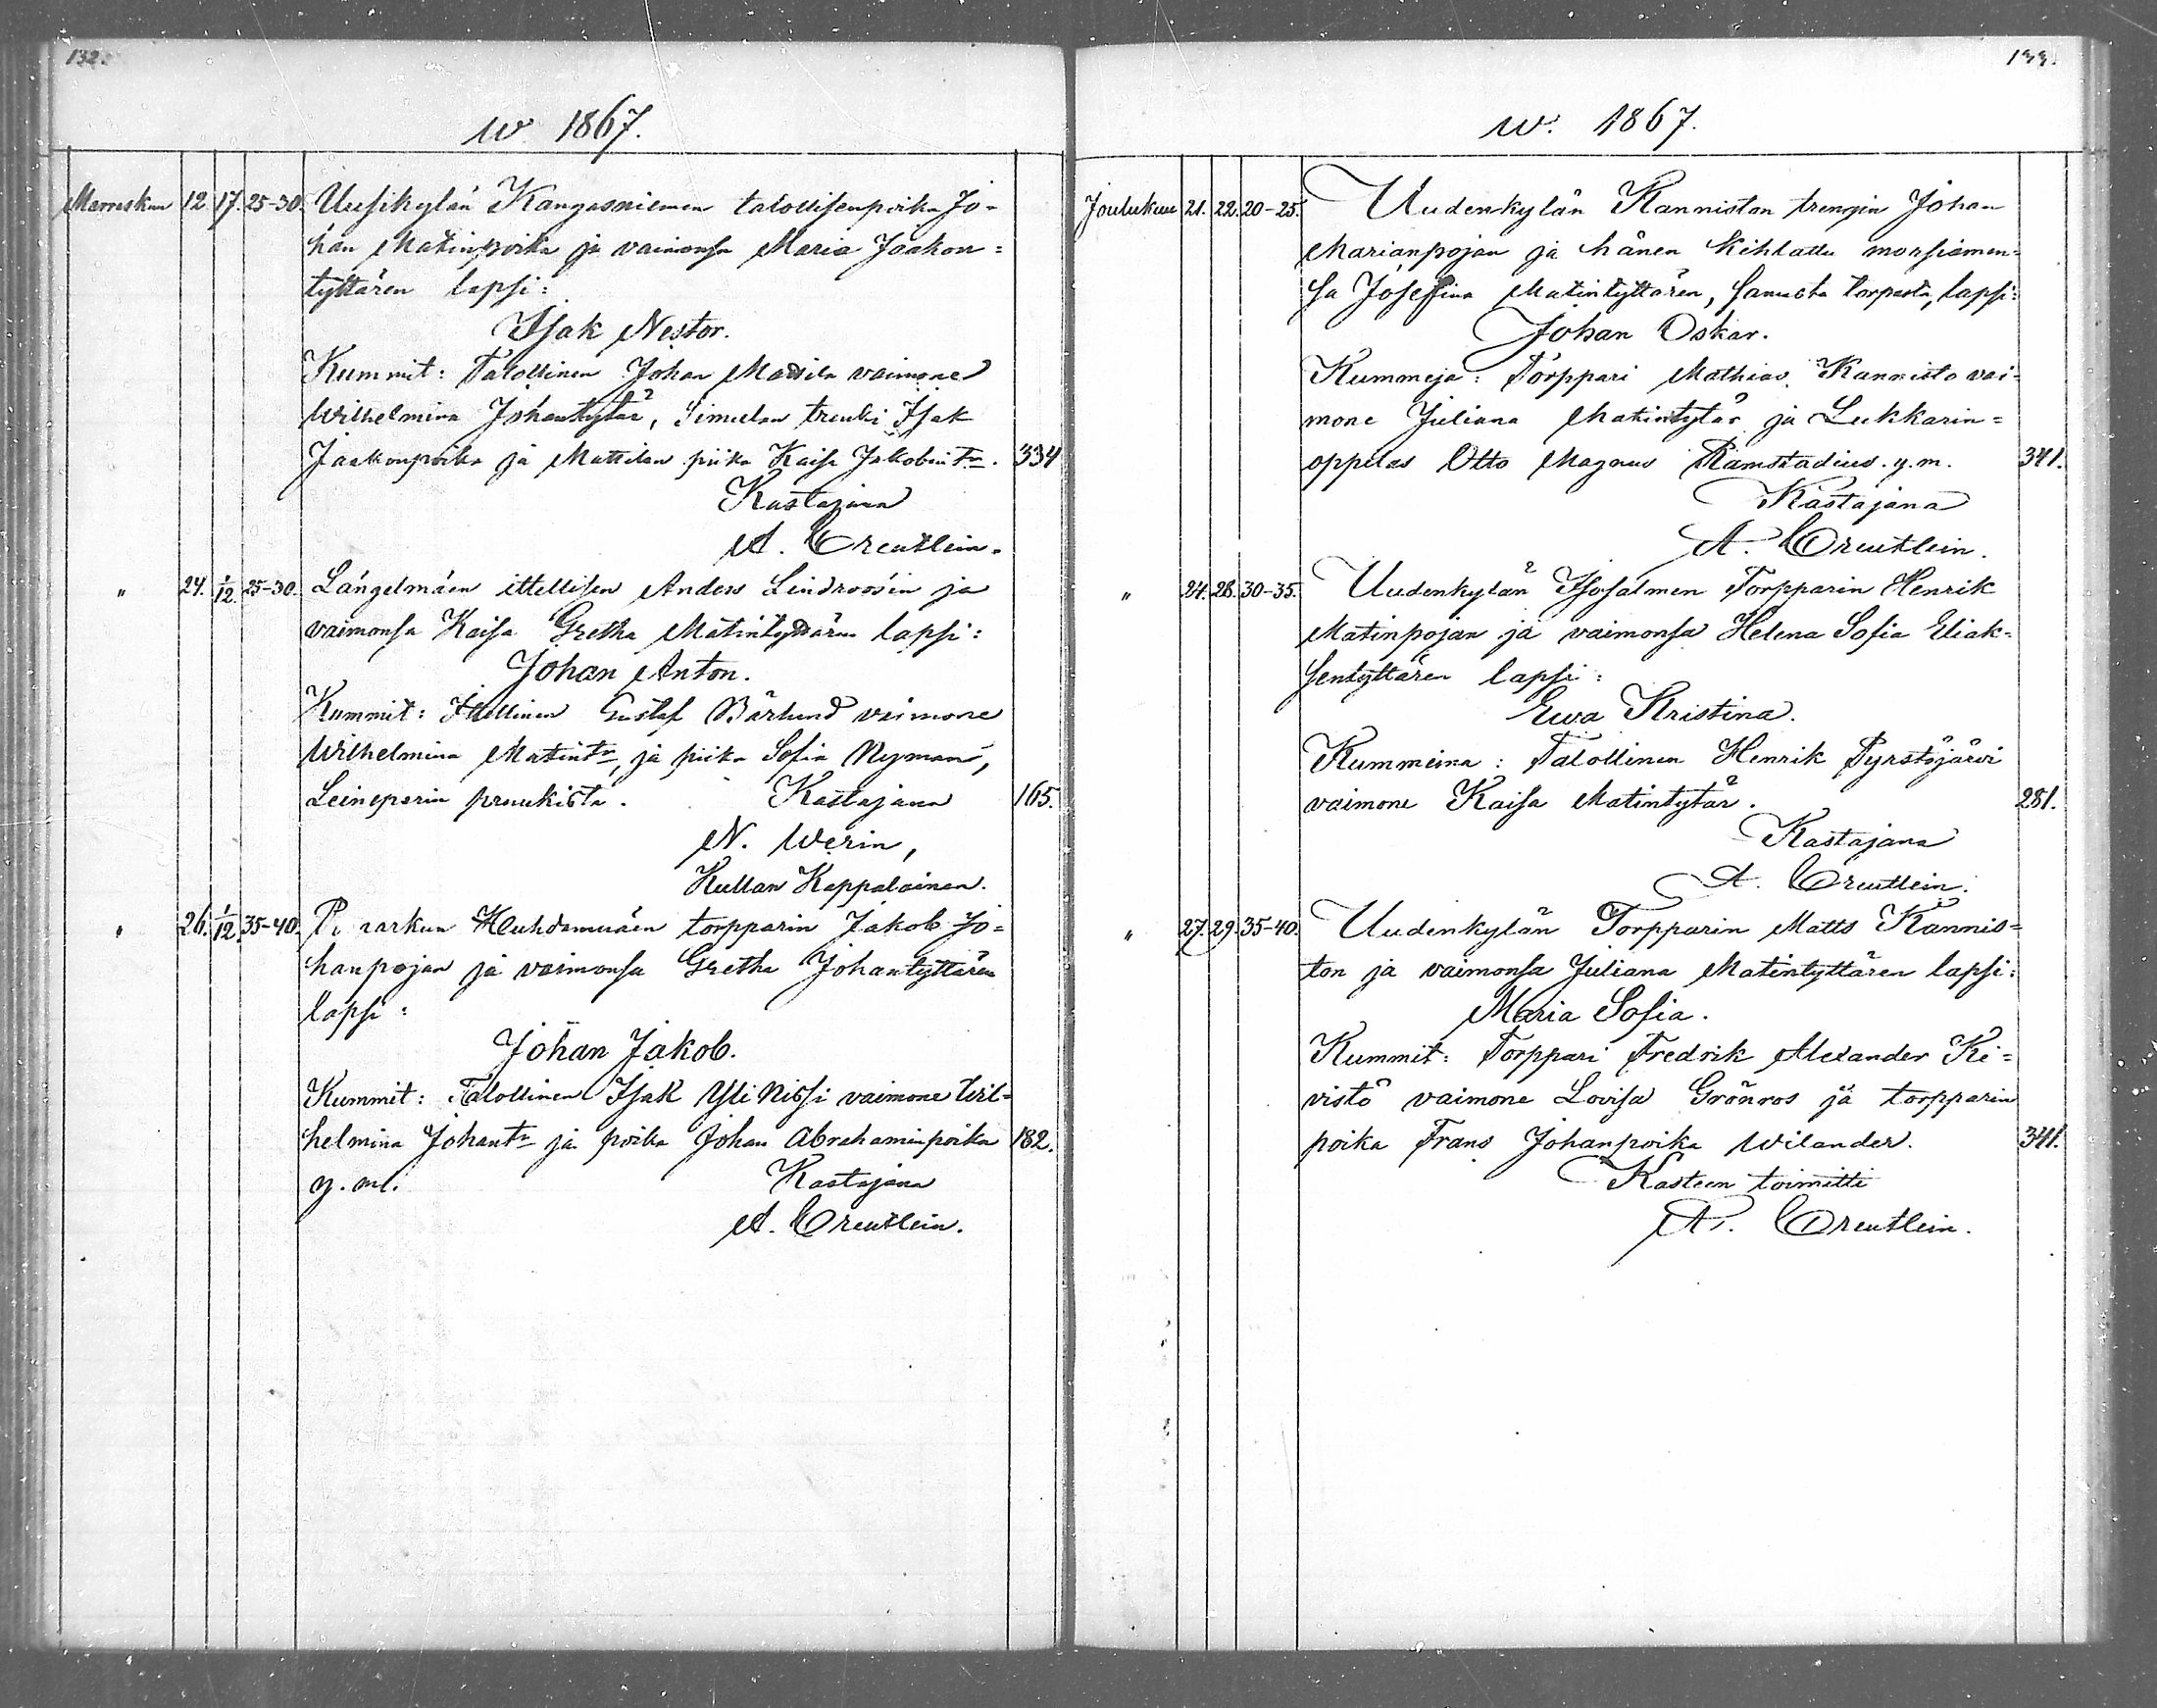 132.
w. 1867.
Marraskuu 12. 17. 25-30. Uusikylän Kangasniemen talollisenpoika Jo=
han Matinpoika ja vaimonsa Maria Jaakon=
tyttären lapsi:
Isak Nestor.
Kummit: Talollinen Johan Mattila vaimone
Wilhelmina Johantytär, Simulan trenki Isak
Jaakonpoika ja Mattilan piika Kaisa Jakobintr. 334
Kastajana
A. Creutlein.
" 24. 1/12. 25-30. Längelmäen ittellisen Anders Lindroosin ja
vaimonsa Kaisa Gretha Matintyttären lapsi:
Johan Anton.
Kummit: Itellinen Gustaf Bärlund vaimone
Wilhelmina Matintr, ja piika Sofia Nyman,
Leineperin pruukista. Kastajana 165.
N. Werin,
Kullan Kappalainen.
" 26. 1/12. 35-40. Huhdamnäen torpparin Jakob Jo=
hanpojan ja vaimonsa Gretha Johantyttären
lapsi:
Johan Jakob.
Kummit: Talollinen Isak Yli Nissi vaimone Wil=
helmina Johantr ja poika Johan Abrahaminpoika 182.
y. m. Kastajana
A. Creutlein.
133.
w. 1867.
Joulukuu 21. 22. 20-25. Uudenkylän Kanniston trengin Johan
Marianpojan ja hänen kihlattu morsiamen=
sa Josefina Matintyttären, samasta torpasta, lapsi:
Johan Oskar.
Kummeja: Torppari Mathias Kannisto vai=
mone Juliana Matintytär ja Lukkarin=
oppilas Otto Magnus Ramstadius. y. m. 341.
Kastajana
A. Creutlein.
" 24. 28. 30-35. Uudenkylän Isosalmen Torpparin Henrik
Matinpojan ja vaimonsa Helena Sofia Eliak=
sentyttären lapsi:
Ewa Kristina.
Kummeina: Talollinen Henrik Pyrstöjärvi
vaimone Kaisa Matintytär. 281.
Kastajana
A. Creutlein.
" 27. 29. 35-40. Uudenkylän Torpparin Matts Kannis=
ton ja vaimonsa Juliana Matintyttären lapsi:
Maria Sofia.
Kummit: Torppari Fredrik Alexander Ki=
vistö vaimone Lovisa Grönros ja torpparin
poika Frans Johanpoika Wilander. 341.
Kasteen toimitti
A. Creutlein.